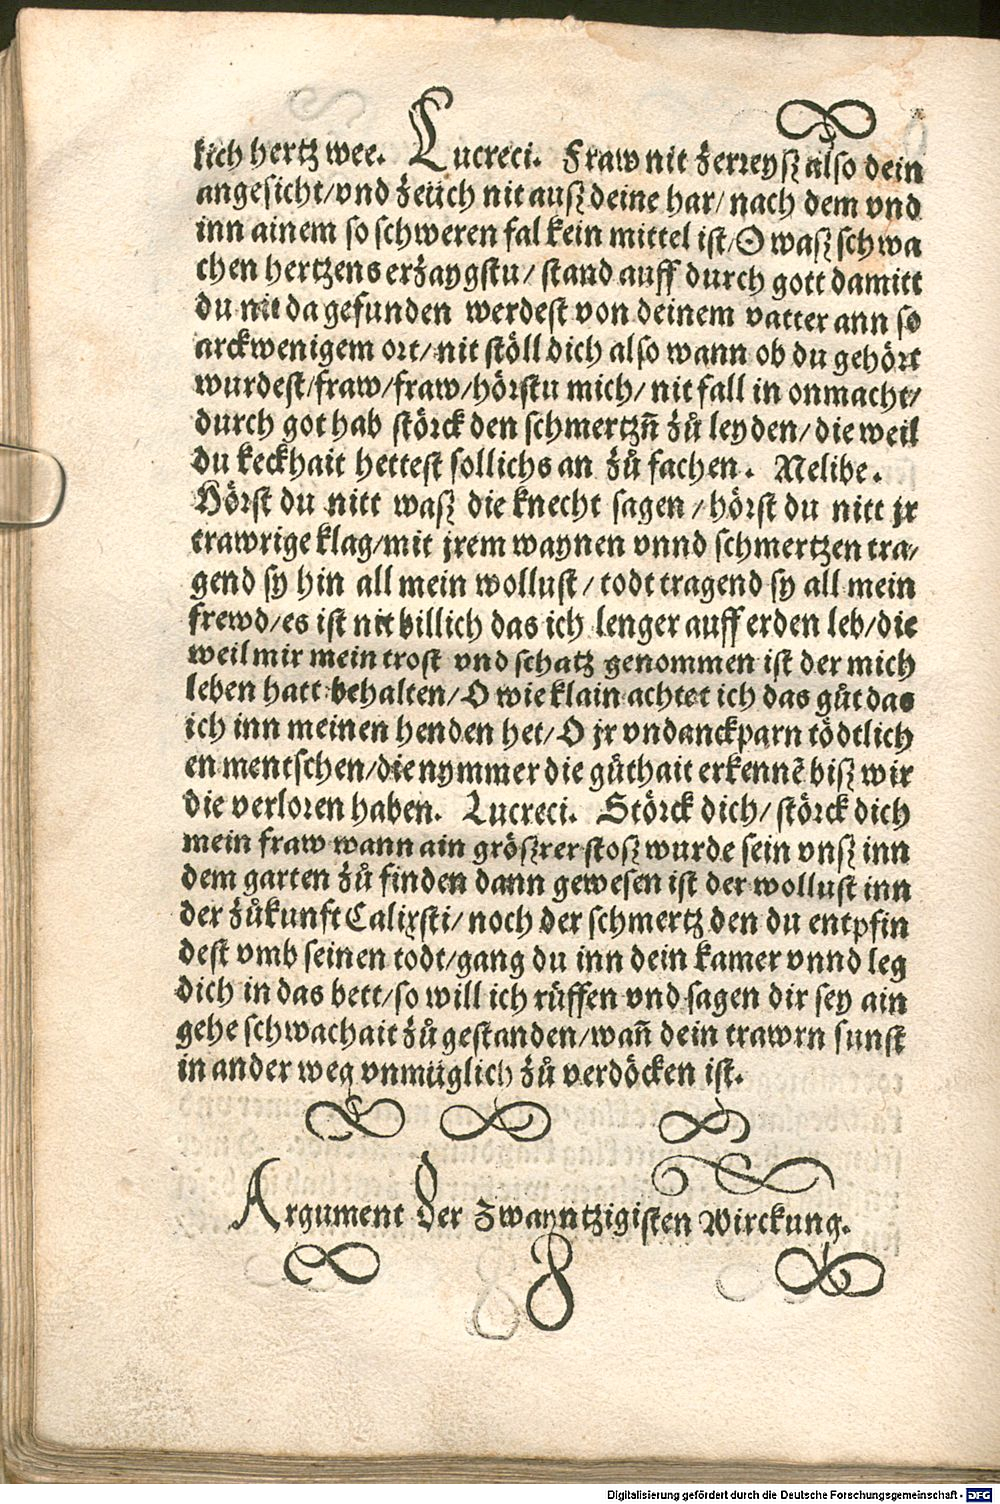 lich hertz wee. Lucreci. Fraw nit zerreysz also dein
angesicht/vnd zeüch nit ausz deine har/nach dem vnd
inn ainem so schweren fal kein mittel ist/O wasz schwa
chen hertzens erzaygstu/ stand auff durch gott damitt
du nit da gefunden werdest von deinem vatter ann so
arckwenigem ort/nit stöll dich also wann ob du gehört
wurdest/fraw/fraw/hörstu mich/ nit fall in onmacht/
durch got hab störck den schmertzn̄ zů leyden/die weil
du keckhait hettest sollichs an zů fachen. Melibe.
Hörst du nitt wasz die knecht sagen/hörst du nitt jr
trawrige klag/mit jrem waynen vnnd schmertzen tra/
gend sy hin all mein wollust/todt tragend sy all mein
frewd/es ist nit billich das ich lenger auff erden leb/die
weil mir mein trost vnd schatz genommen ist der mich
leben hatt behalten/O wie klain achtet ich das gůt das
ich inn meinen henden het/O jr vndanckparn tödtlich
en mentschen/die nymmer die gůthait erkennē bisz wir
die verloren haben. Lucreci. Störck dich/störck dich
mein fraw wann ain gröszrer stosz wurde sein vnsz inn
dem garten zů finden dann gewesen ist der wollust inn
der zůkunft Calixsti/noch der schmertz den du entpfin
dest vmb seinen todt/gang du inn dein kamer vnnd leg
dich in das bett/so will ich rüffen vnd sagen dir sey ain
gehe schwachait zů gestanden/wan̄ dein trawrn sunst
in ander weg vnmüglich zů verdöcken ist.
Argument der zwayntzigisten Wirckung.
Digitalisierung gefördert durch die Deutsche Forschungsgemeinschaft - DFG